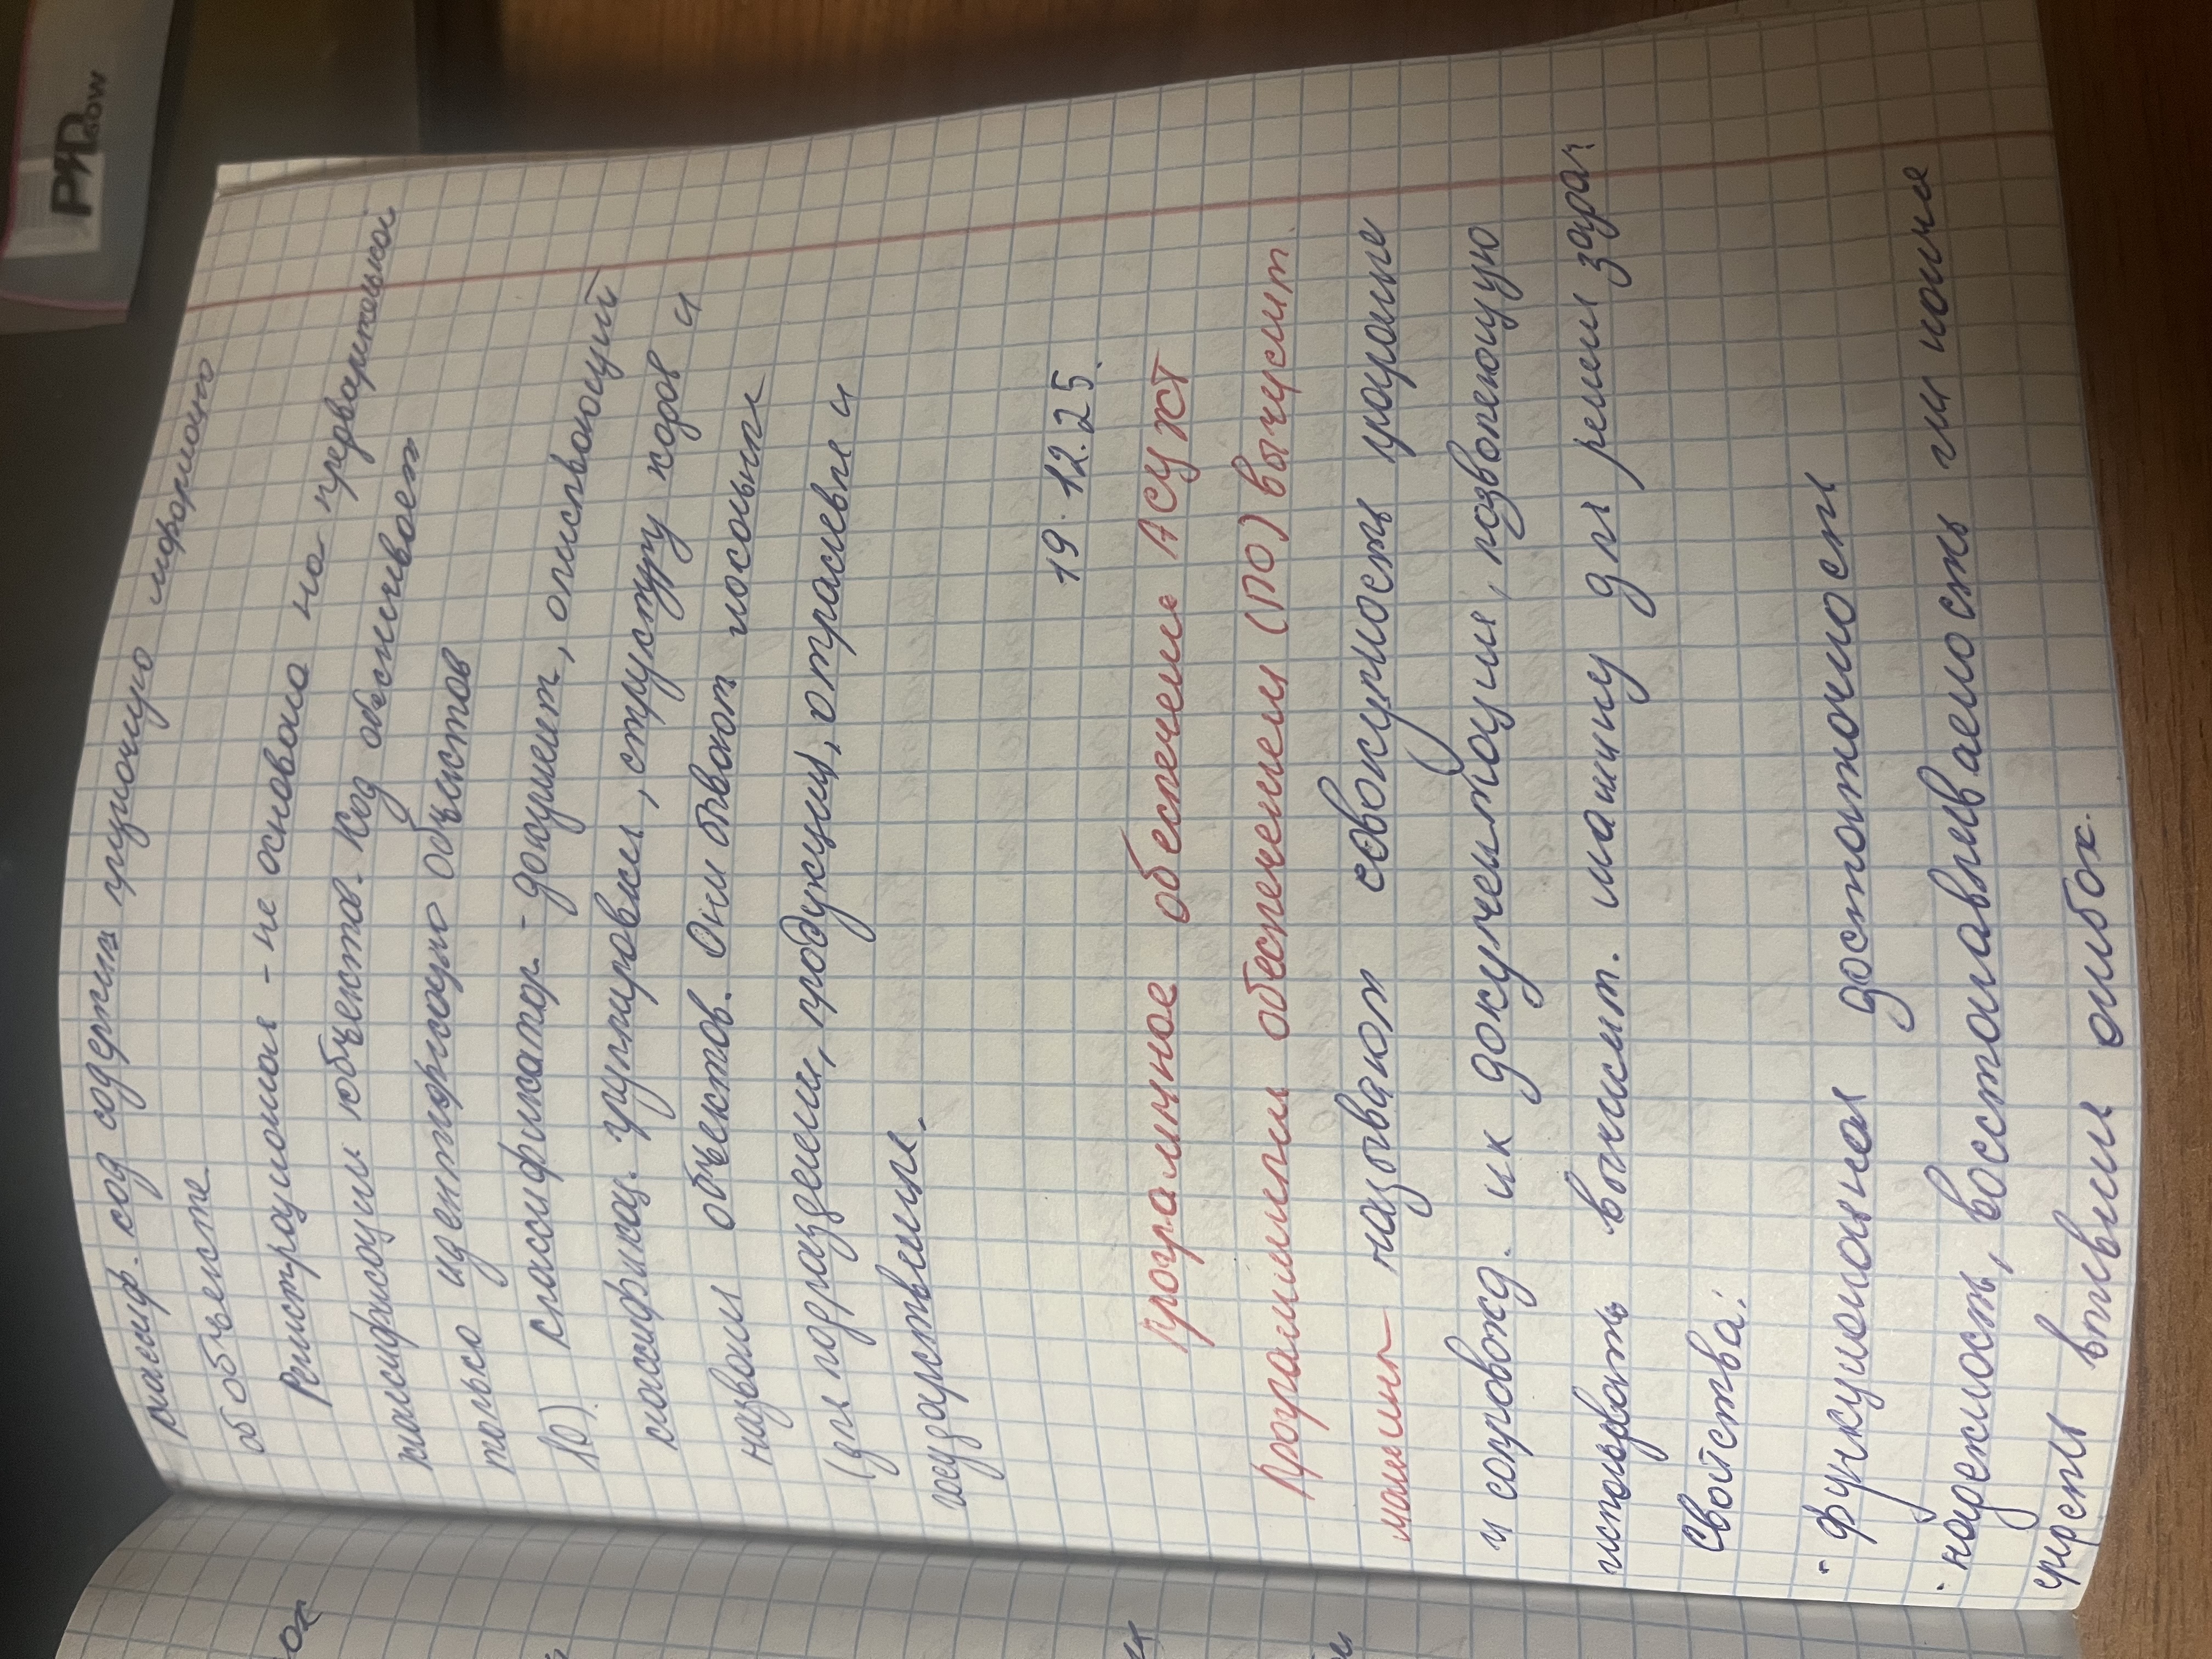 классиф. код содержит групочную информацию
об объекте.
Регистрационная - не основана на предварительной
классификации объектов. Код обеспечивает
только идентификацию объектов
10) классификатор - документ, описывающий
классификац. группировки, структуру кодов и
названи объектов. Они бывают локальные
(для подразделени, продукции, отраслевые и
государственные.
19.12.25.
Программное обеспечение АСУЖТ
Программным обеспечением (ПО) вычислит
машины называют совокупность программ
и сопровожд. их документации, позволяющую
использовать вычислит. машину для решен задач
Свойства:
· функциональная достаточность
· надежность, восстанавливаемость
влиян ошибок.
PHD
GOW